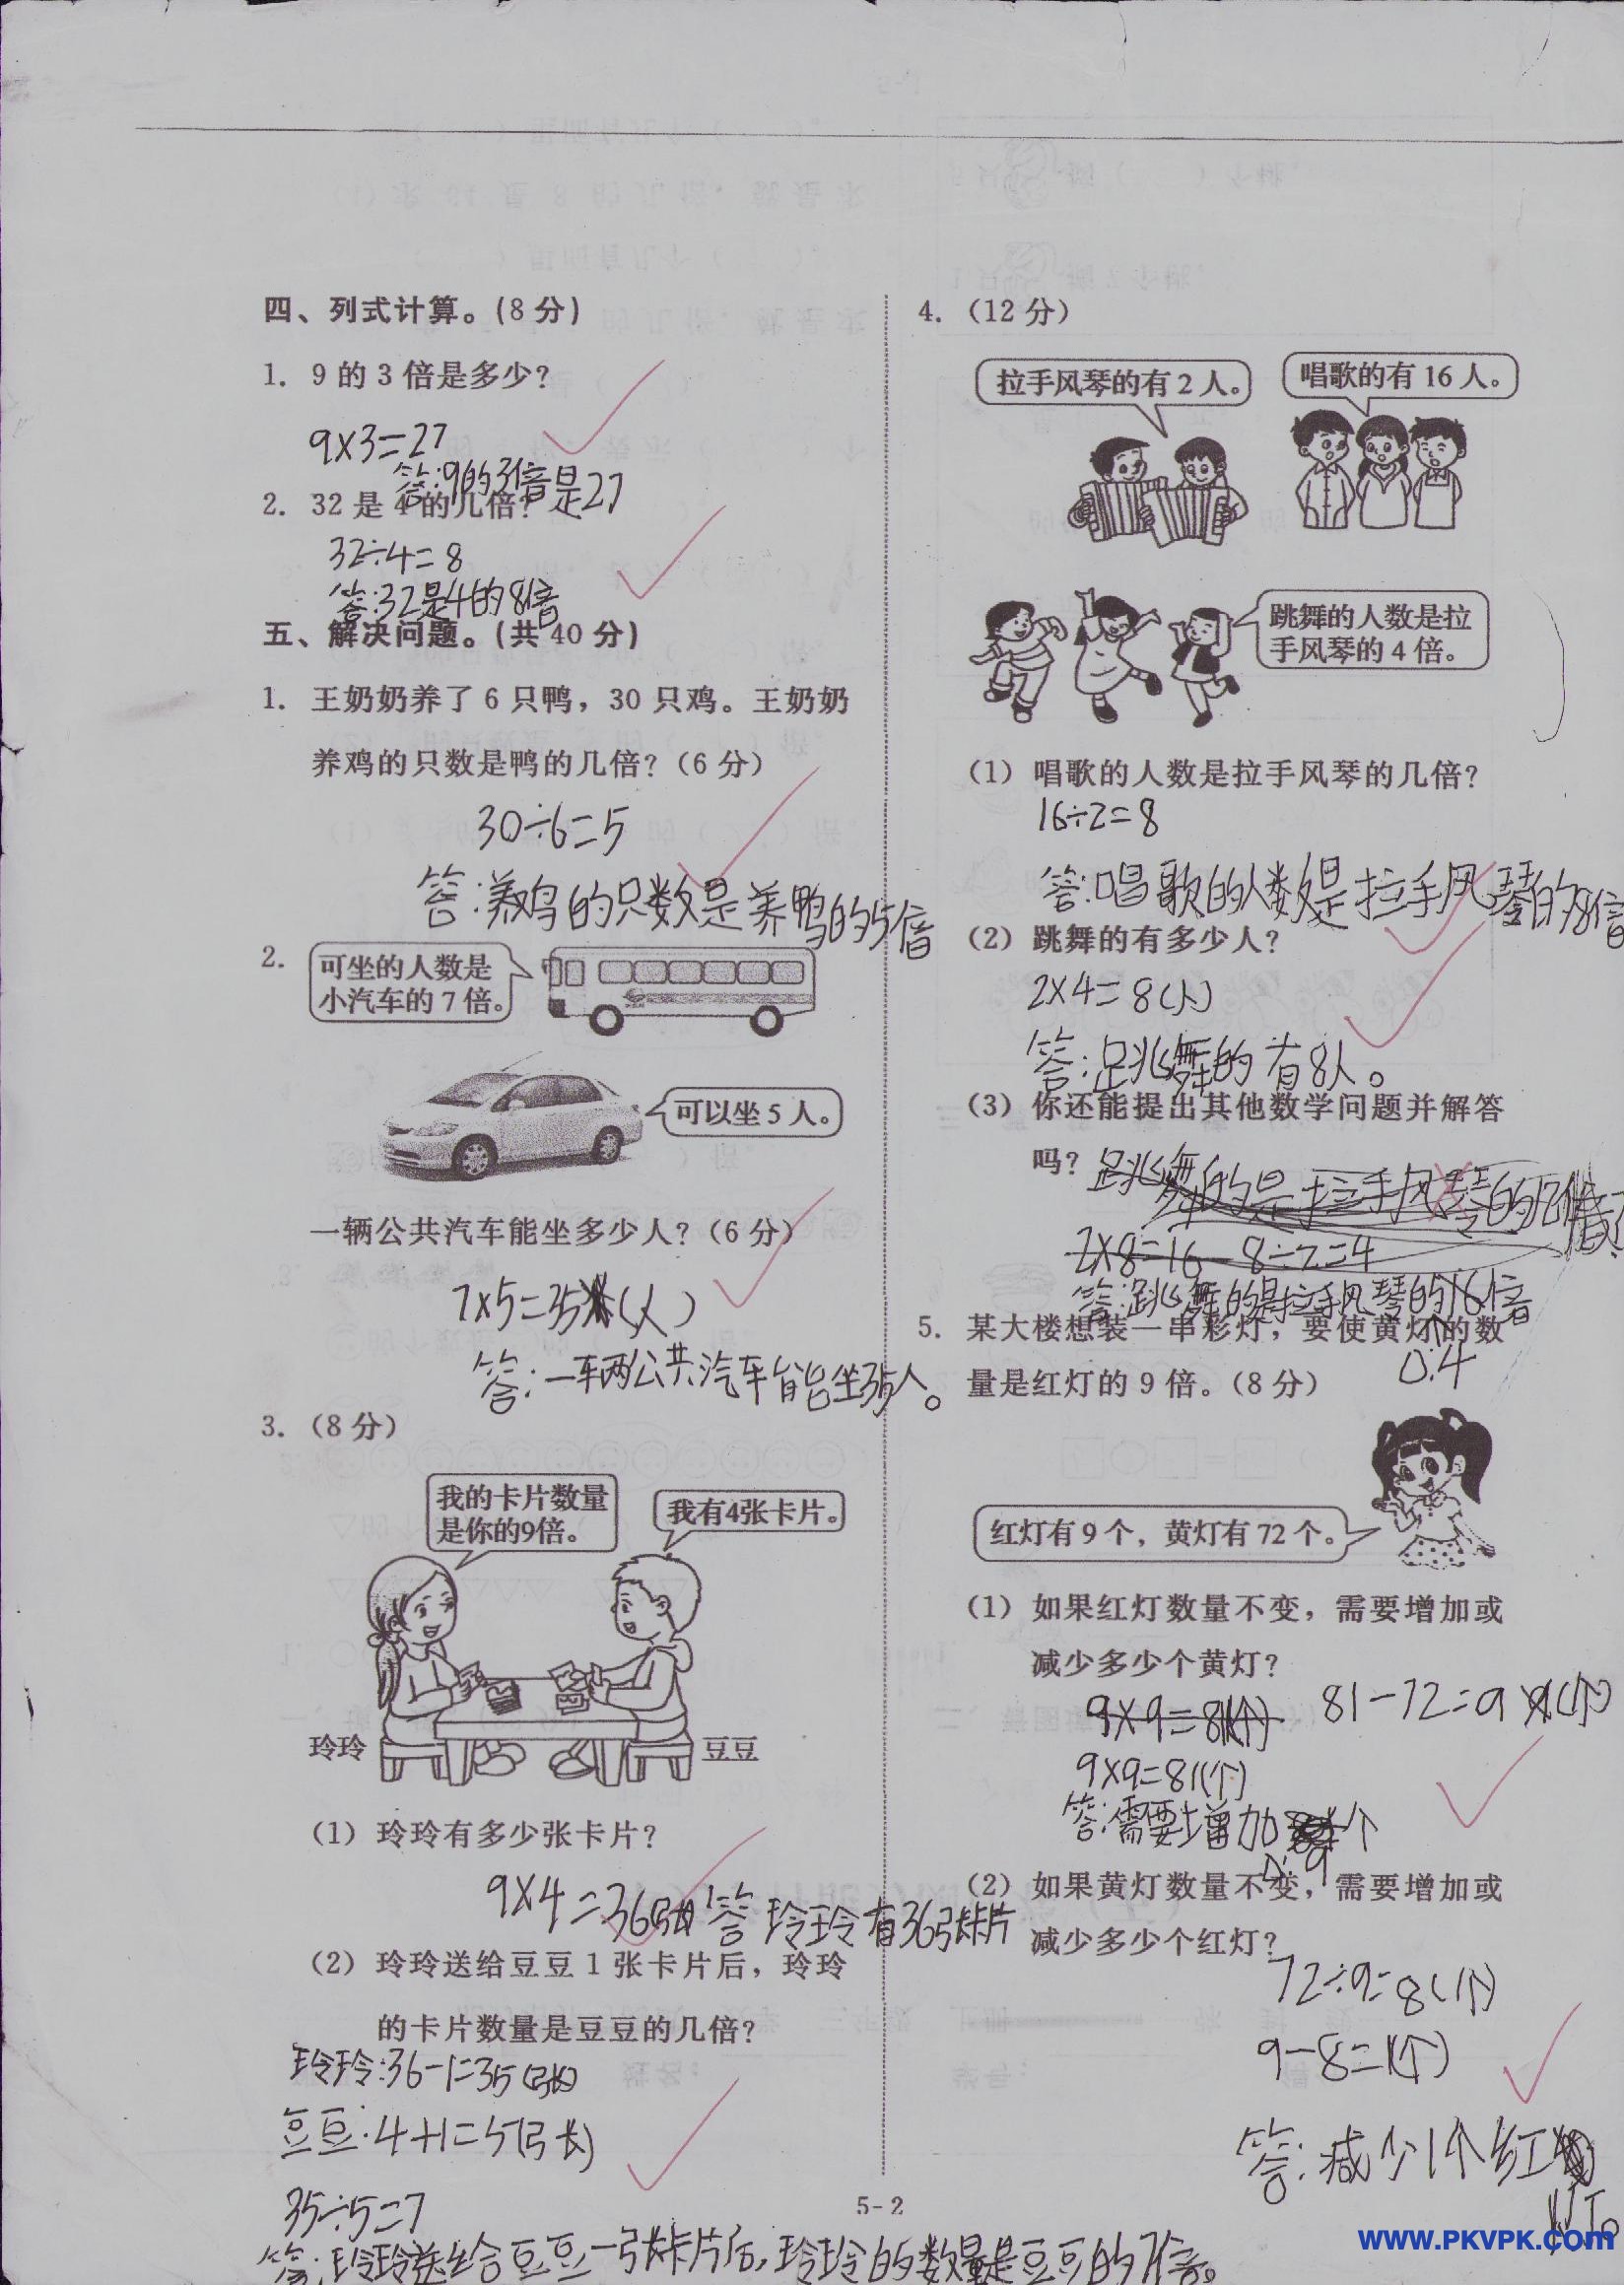 四、列式计算。(8分)
1. 9的3倍是多少?
9×3=27
答:9的3倍是27
2. 32是4的几倍?
32÷4=8
答:32是4的8倍
五、解决问题。(共40分)
1. 王奶奶养了6只鸭，30只鸡。王奶奶
养鸡的只数是鸭的几倍?(6分)
30÷6=5
答:养鸡的只数是养鸭的5倍
2.
可坐的人数是
小汽车的7倍。
可以坐5人。
一辆公共汽车能坐多少人?(6分)
7×5=35(人)
答:一辆公共汽车能坐35人。
3.(8分)
我的卡片数量
是你的9倍。
我有4张卡片。
玲玲
豆豆
(1) 玲玲有多少张卡片?
9×4=36(张) 答 玲玲有36张卡片
(2) 玲玲送给豆豆1张卡片后，玲玲
的卡片数量是豆豆的几倍?
玲玲:36-1=35(张)
豆豆:4+1=5(张)
35÷5=7
答:玲玲送给豆豆一张卡片后,玲玲的数量是豆豆的7倍。
4.(12分)
拉手风琴的有2人。
唱歌的有16人。
跳舞的人数是拉
手风琴的4倍。
(1) 唱歌的人数是拉手风琴的几倍?
16÷2=8
答:唱歌的人数是拉手风琴的8倍
(2) 跳舞的有多少人?
2×4=8(人)
答:跳舞的有8人。
(3) 你还能提出其他数学问题并解答
吗? 跳舞的是拉手风琴的几倍?
2×8=16 8÷2=4
答:跳舞的是拉手风琴的16倍
4
5. 某大楼想装一串彩灯，要使黄灯的数
量是红灯的9倍。(8分)
红灯有9个，黄灯有72个。
(1) 如果红灯数量不变，需要增加或
减少多少个黄灯?
9×9=81(个) 81-72=9(个)
9×9=81(个)
答:需要增加个
9
(2) 如果黄灯数量不变，需要增加或
减少多少个红灯?
72÷9=8(个)
9-8=1(个)
答:减少1个红
灯。
5-2
www.PKVPK.com